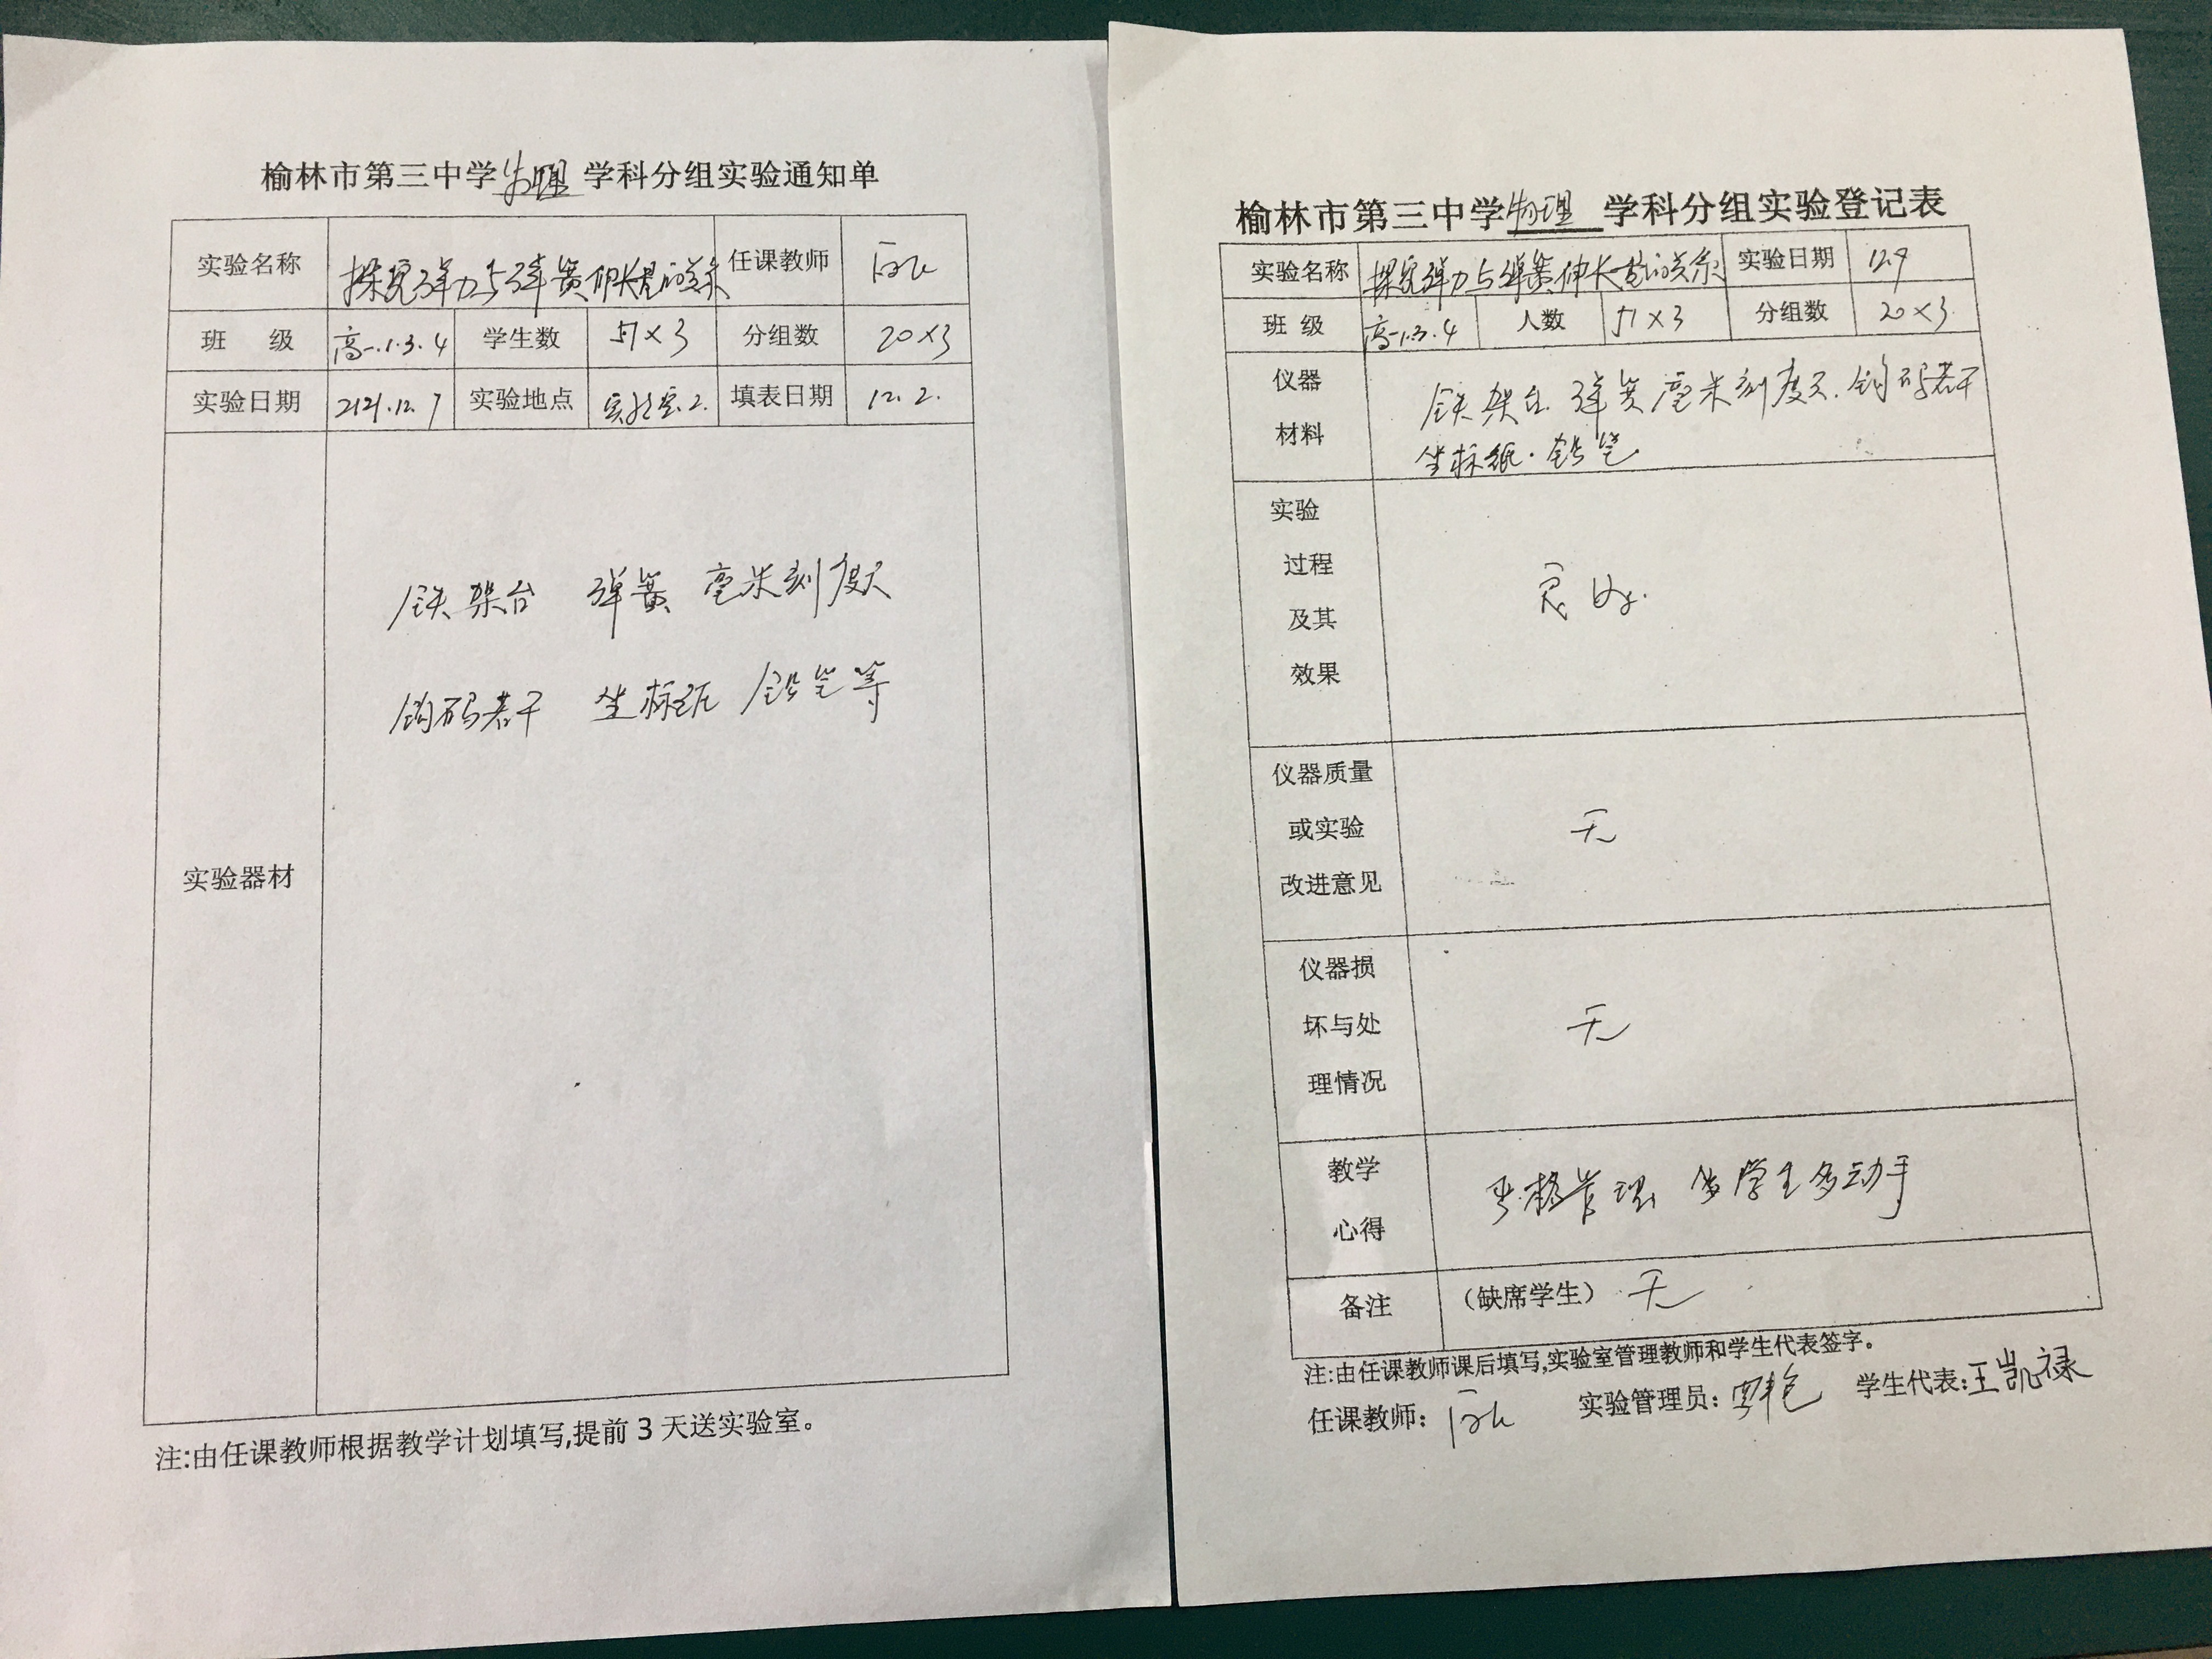 榆林市第三中学物理学科分组实验通知单
实验名称 探究弹力与弹簧伸长量的关系 任课教师
班 级 高一.1.3.4 学生数 51×3 分组数 20×3
实验日期 2121.12.7 实验地点 实验室.2. 填表日期 12.2.
实验器材
铁架台 弹簧 毫米刻度尺
钩码若干 坐标纸 铅笔等
注:由任课教师根据教学计划填写,提前3天送实验室。
榆林市第三中学物理学科分组实验登记表
实验名称 探究弹力与弹簧伸长量的关系 实验日期 12.9
班 级 高一1.3.4 人数 51×3 分组数 20×3
仪器
材料
铁架台. 弹簧 毫米刻度尺. 钩码若干
坐标纸. 铅笔.
实验
过程
及其
效果
良好.
仪器质量
或实验
改进意见
无
仪器损
坏与处
理情况
无
教学
心得
严格管理 让学生多动手
备注 (缺席学生) 无
注:由任课教师课后填写,实验室管理教师和学生代表签字。
任课教师: 实验管理员: 学生代表:王凯禄